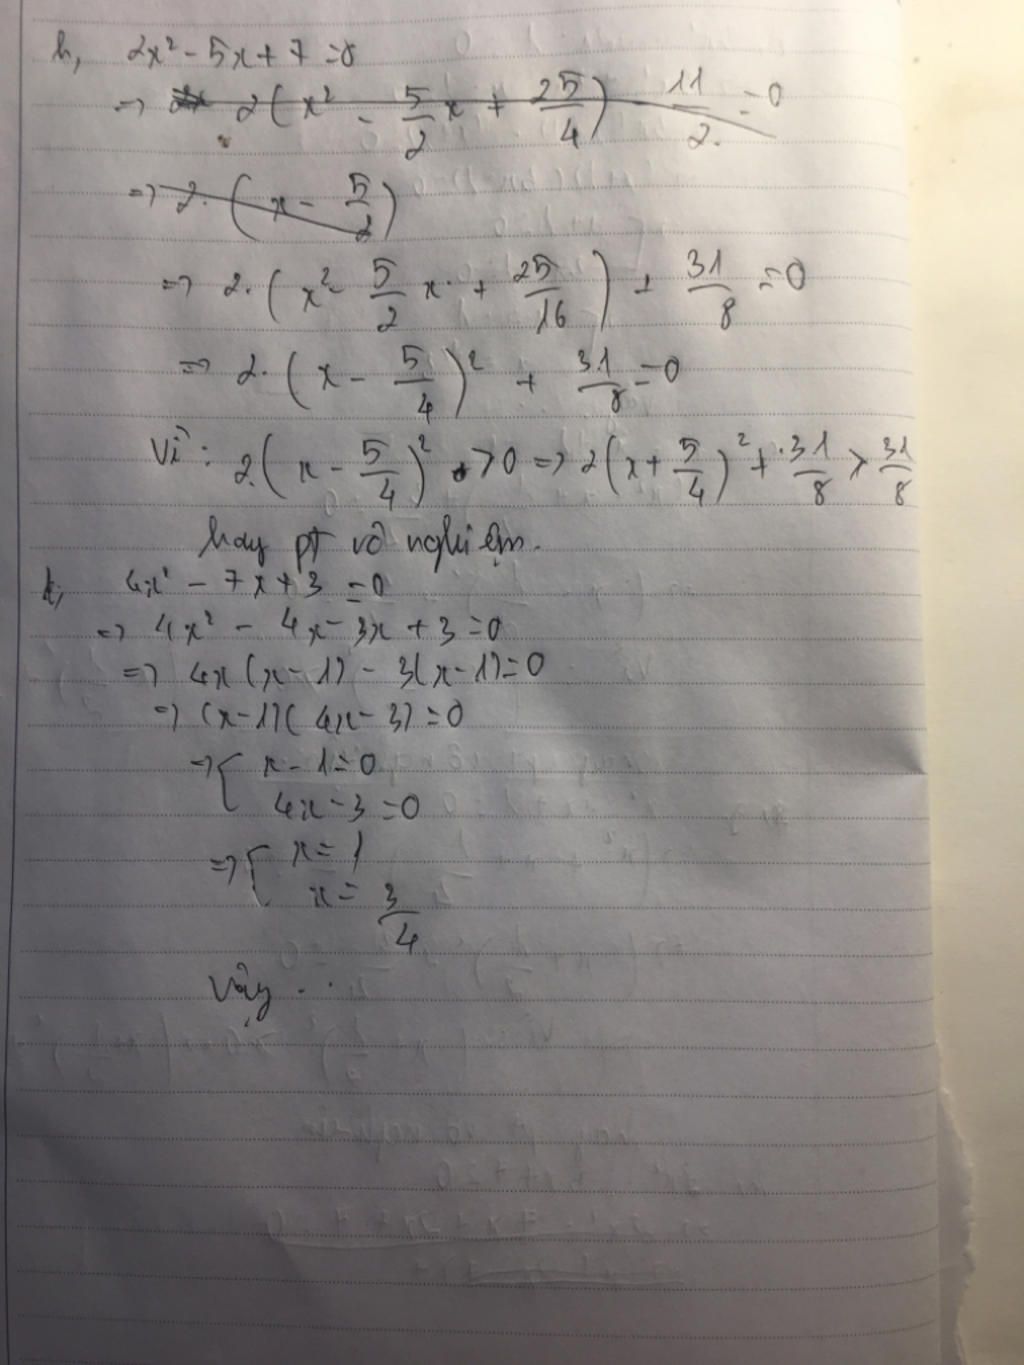 h, 2x² - 5x + 7 = 0
=> 2(x² - 5/2 x + 25/4) - 11/2 = 0
=> 2. (x - 5/2)
=> 2. (x² - 5/2 x + 25/16) + 31/8 = 0
=> 2. (x - 5/4)² + 31/8 = 0
Vì: 2.(x - 5/4)² > 0 => 2(x + 5/4)² + 31/8 > 31/8
hay pt vô nghiệm.
k, 4x² - 7x + 3 = 0
=> 4x² - 4x - 3x + 3 = 0
=> 4x (x - 1) - 3(x - 1) = 0
=> (x - 1)(4x - 3) = 0
=> [ x - 1 = 0
4x - 3 = 0
=> [ x = 1
x = 3/4
Vậy ...